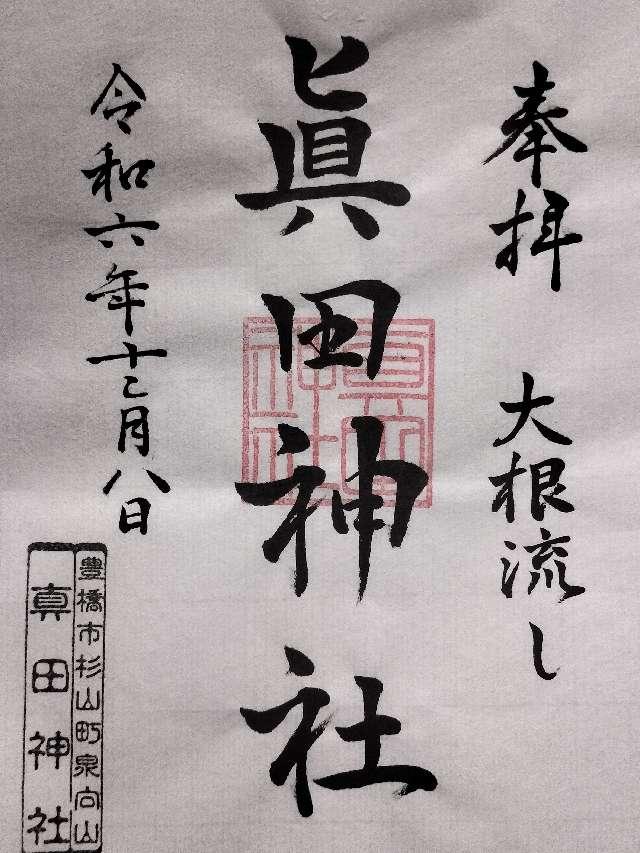 奉拝 大根流し
眞田神社
眞田神社
令和六年十二月八日
豊橋市杉山町泉向山
真田神社